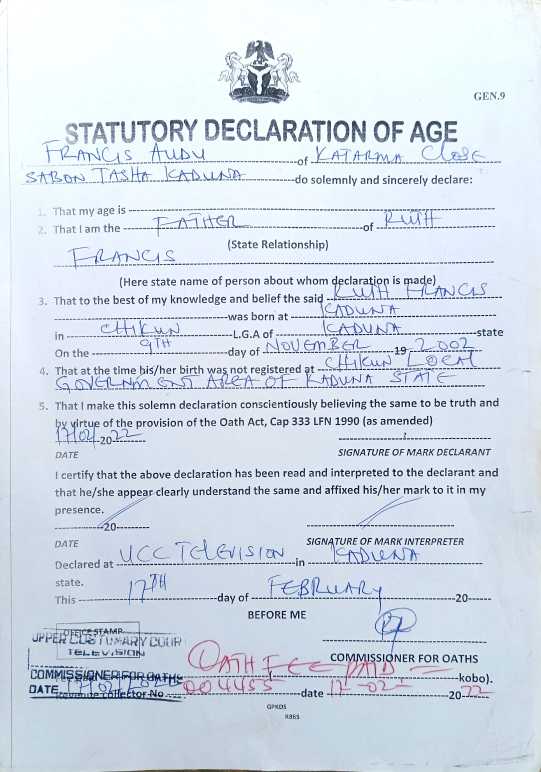 GEN.9
STATUTORY DECLARATION OF AGE
FRANCIS AUDU of KATARMA CLOSE
SABON TASHA KADUNA do solemnly and sincerely declare:
1. That my age is
2. That I am the FATHER of RUTH
(State Relationship)
FRANCIS
(Here state name of person about whom declaration is made)
3. That to the best of my knowledge and belief the said RUTH FRANCIS
was born at KADUNA
in CHIKUN L.G.A of KADUNA state
On the 9TH day of NOVEMBER 19 2002
4. That at the time his/her birth was not registered at CHIKUN LOCAL
GOVERNMENT AREA OF KADUNA STATE
5. That I make this solemn declaration conscientiously believing the same to be truth and
by virtue of the provision of the Oath Act, Cap 333 LFN 1990 (as amended)
17/02/ 20 22
DATE SIGNATURE OF MARK DECLARANT
I certify that the above declaration has been read and interpreted to the declarant and
that he/she appear clearly understand the same and affixed his/her mark to it in my
presence.
20
DATE SIGNATURE OF MARK INTERPRETER
Declared at UCC TELEVISION in KADUNA
state.
This 17TH day of FEBRUARY 20
BEFORE ME
OFFICE STAMP
UPPER CUSTOMARY COUR
TELEVISION
COMMISSIONER FOR OATHS
OATH FEE PAID
COMMISSIONER FOR OATHS
( kobo).
DATE 17/02/2022
Revenue collector No 004455 date 17-02- 20 22
GPKDS
R865